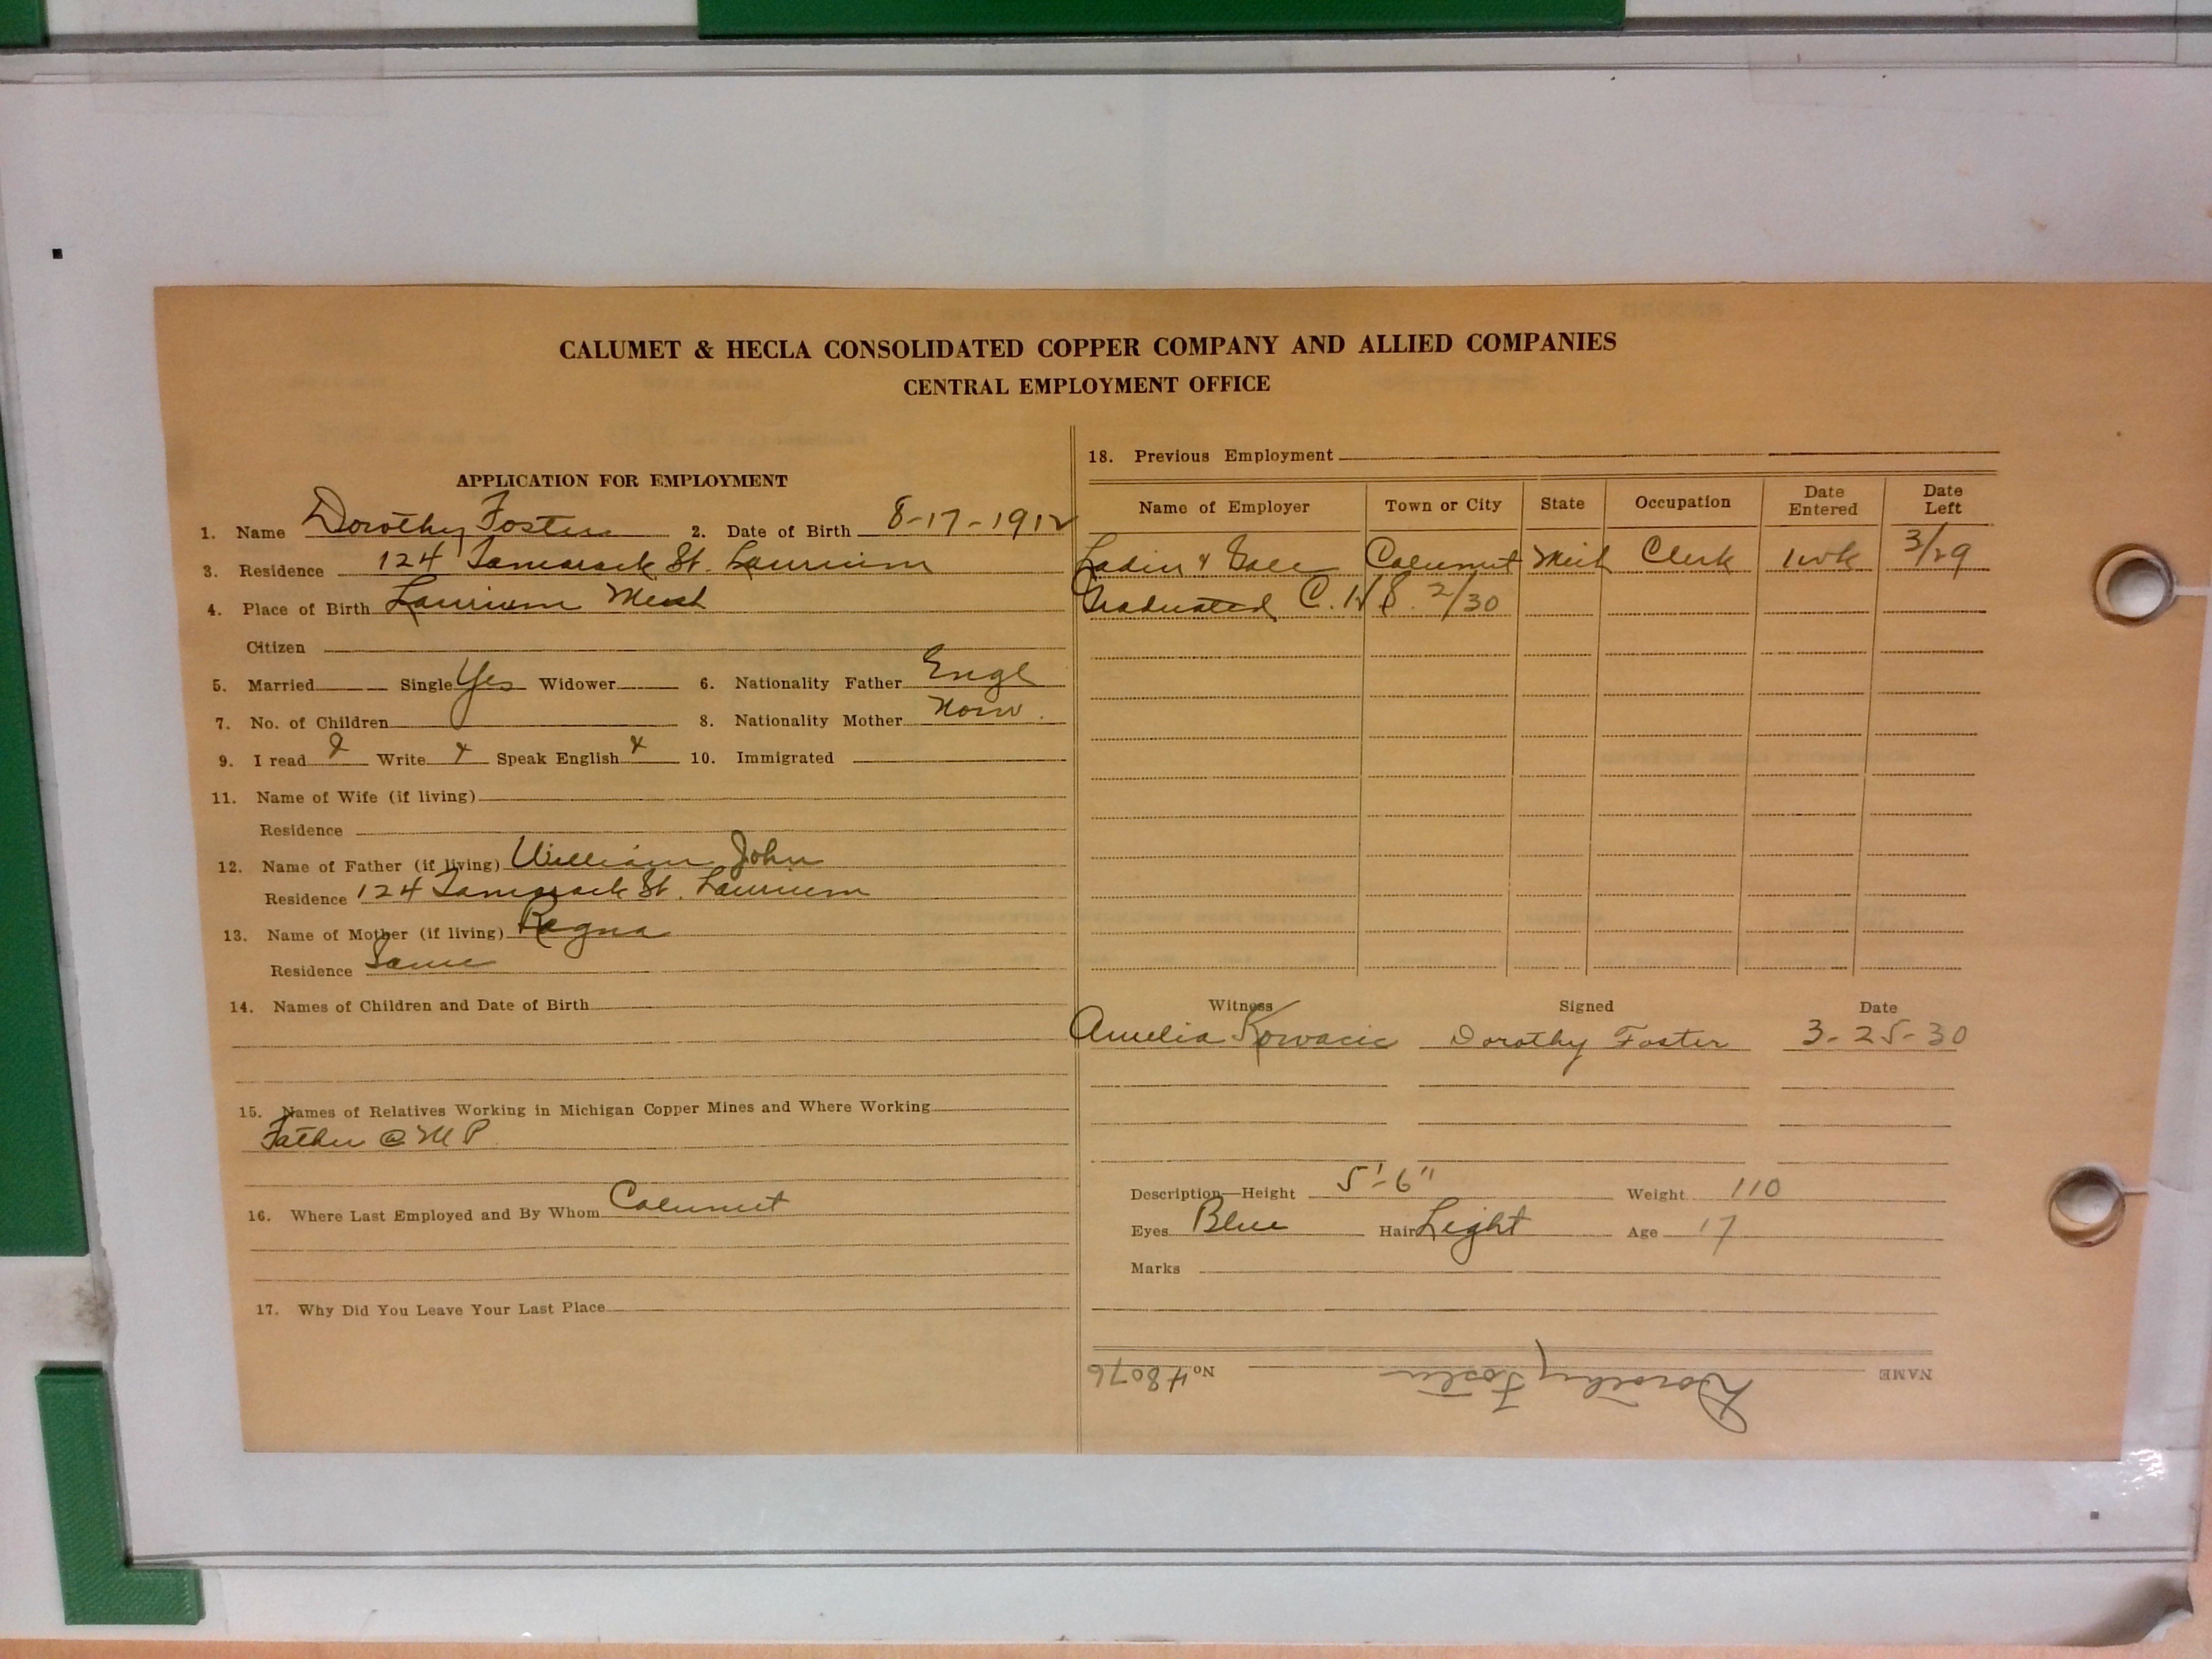 CALUMET & HECLA CONSOLIDATED COPPER COMPANY AND ALLIED COMPANIES
CENTRAL EMPLOYMENT OFFICE
APPLICATION FOR EMPLOYMENT
1. Name Dorothy Foster 2. Date of Birth 8-17-1912
3. Residence 124 Tamarack St. Laurium
4. Place of Birth Laurium Mich
Citizen
5. Married Single Yes Widower 6. Nationality Father Engl
7. No. of Children 8. Nationality Mother Norw.
9. I read Write x Speak English x 10. Immigrated
11. Name of Wife (if living)
Residence
12. Name of Father (if living) William John
Residence 124 Tamarack St. Laurium
13. Name of Mother (if living) Ragna
Residence Same
14. Names of Children and Date of Birth
15. Names of Relatives Working in Michigan Copper Mines and Where Working
Father @ M P
16. Where Last Employed and By Whom Calumet
17. Why Did You Leave Your Last Place
18. Previous Employment
Name of Employer Town or City State Occupation Date Entered Date Left
& Calumet Mich Clerk 1 wk 3/29
Graduated C. H S. 2/30
Witness Signed Date
Amelia Kovacic Dorothy Foster 3-25-30
Description—Height 5'-6" Weight 110
Eyes Blue Hair Light Age 17
Marks
NAME Dorothy Foster No. 48076